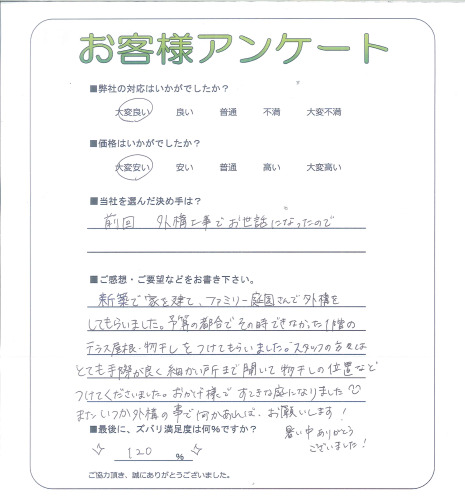 お客様アンケート
■弊社の対応はいかがでしたか？
大変良い 良い 普通 不満 大変不満
■価格はいかがでしたか？
大変安い 安い 普通 高い 大変高い
■当社を選んだ決め手は？
前回 外構工事でお世話になったので
■ご感想・ご要望などをお書き下さい。
新築で家を建て、ファミリー庭園さんで外構を
してもらいました。予算の都合でその時できなかった1階の
テラス屋根・物干しをつけてもらいました。スタッフの方々は
とても手際が良く細かい所まで聞いて物干しの位置など
つけてくださいました。おかげ様ですてきな庭になりました
またいつか外構の事で何かあれば、お願いします！
■最後に、ズバリ満足度は何%ですか？
120 %
暑い中ありがとう
ございました！
ご協力頂き、誠にありがとうございました。